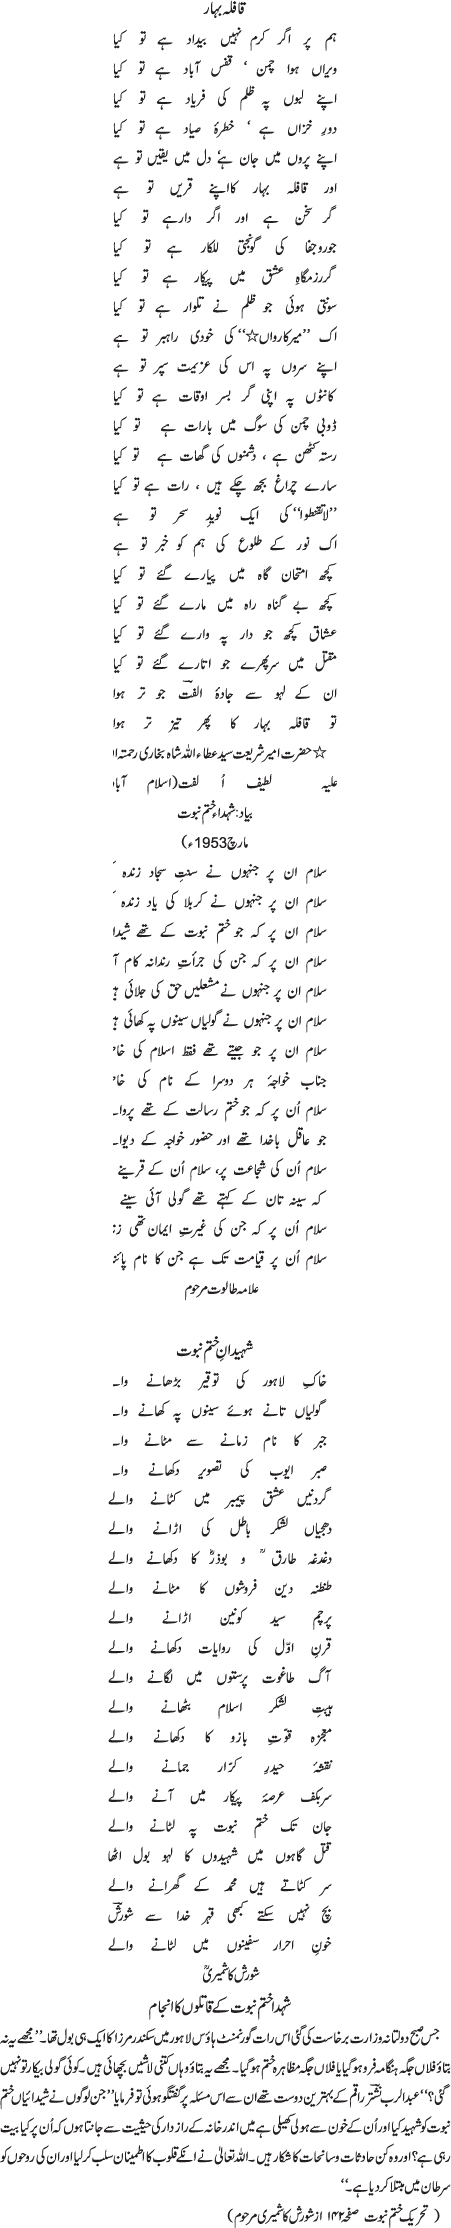 قافلہ بہار
ہم پر اگر کرم نہیں بیداد ہے تو کیا
ویراں ہوا چمن ‘ قفس آباد ہے تو کیا
اپنے لبوں پہ ظلم کی فریاد ہے تو کیا
دورِ خزاں ہے ‘ خطرۂ صیاد ہے تو کیا
اپنے پروں میں جان ہے‘ دل میں یقیں تو ہے
اور قافلہ بہار کااپنے قریں تو ہے
گر سخن ہے اور اگر دارہے تو کیا
جوروجفا کی گونجتی للکار ہے تو کیا
گررزمگاہِ عشق میں پیکار ہے تو کیا
سونتی ہوئی جو ظلم نے تلوار ہے تو کیا
اک ’’میرکارواں☆‘‘ کی خودی راہبر تو ہے
اپنے سروں پہ اس کی عزیمت سپر تو ہے
کانٹوں پہ اپنی گر بسر اوقات ہے تو کیا
ڈوبی چمن کی سوگ میں بارات ہے تو کیا
رستہ کٹھن ہے ، دشمنوں کی گھات ہے تو کیا
سارے چراغ بجھ چکے ہیں ، رات ہے تو کیا
’’لاتقنطوا‘‘ کی ایک نویدِ سحر تو ہے
اک نور کے طلوع کی ہم کو خبر تو ہے
کچھ امتحان گاہ میں پیارے گئے تو کیا
کچھ بے گناہ راہ میں مارے گئے تو کیا
عشاق کچھ جو دار پہ وارے گئے تو کیا
مقتل میں سرپھرے جو اتارے گئے تو کیا
ان کے لہو سے جادۂ الفتؔ جو تر ہوا
تو قافلہ بہار کا پھر تیز تر ہوا
☆حضرت امیر شریعت سید عطاء اللہ شاہ بخاری رحمتہ ا
علیہ لطیف اُلفت(اسلام آبا
بیاد: شہداء ختم نبوت
مارچ 1953ء)
سلام ان پر جنہوں نے سنتِ سجاد زندہ
سلام ان پر جنہوں نے کربلا کی یاد زندہ
سلام ان پر کہ جو ختم نبوت کے تھے شیدا
سلام ان پر کہ جن کی جرأتِ رندانہ کام آ
سلام ان پر جنہوں نے مشعلیں حق کی جلائی
سلام ان پر جنہوں نے گولیاں سینوں پہ کھائی
سلام ان پر جو جیتے تھے فقط اسلام کی خا
جناب خواجۂ ہر دوسرا کے نام کی خا
سلام اُن پر کہ جو ختم رسالت کے تھے پروا
جو عاقل باخدا تھے اور حضور خواجہ کے دیوا
سلام اُن کی شجاعت پر، سلام اُن کے قرینے
کہ سینہ تان کے کہتے تھے گولی آئی سینے
سلام اُن پر کہ جن کی غیرتِ ایمان تھی زن
سلام اُن پر قیامت تک ہے جن کا نام پائن
علامہ طالوت مرحوم
شہیدانِ ختم نبوت
خاکِ لاہور کی توقیر بڑھانے وا
گولیاں تانے ہوئے سینوں پہ کھانے وا
جبر کا نام زمانے سے مٹانے وا
صبر ایوب کی تصویر دکھانے وا
گردنیں عشق پیمبر میں کٹانے والے
دھجیاں لشکرِ باطل کی اڑانے والے
دغدغہ طارقؒ و بوذرؓ کا دکھانے والے
طنطنہ دین فروشوں کا مٹانے والے
پرچم سید کونین اڑانے والے
قرنِ اوّل کی روایات دکھانے والے
آگ طاغوت پرستوں میں لگانے والے
ہیبتِ لشکرِ اسلام بٹھانے والے
معجزہ قوّتِ بازو کا دکھانے والے
نقشۂ حیدرِ کرّار جمانے والے
سربکف عرصۂ پیکار میں آنے والے
جان تک ختم نبوت پہ لٹانے والے
قتل گاہوں میں شہیدوں کا لہو بول اٹھا
سر کٹاتے ہیں محمد کے گھرانے والے
بچ نہیں سکتے کبھی قہرِ خدا سے شورشؔ
خونِ احرار سفینوں میں لٹانے والے
شورش کاشمیریؒ
شہدا ختم نبوت کے قاتلوں کا انجام
جس صبح دولتانہ وزارت برخاست کی گئی اس رات گورنمنٹ ہاؤس لاہور میں سکندر مرزا کا ایک ہی بول تھا۔ ’’مجھے یہ نہ
بتاؤ فلاں جگہ ہنگامہ فرو ہوگیا یا فلاں جگہ مظاہرہ ختم ہوگیا۔ مجھے یہ بتاؤ وہاں کتنی لاشیں بچھائی ہیں۔ کوئی گولی بیکار تو نہیں
گئی؟‘‘ عبدالرب نشتر راقم کے بہترین دوست تھے ان سے اس مسئلہ پر گفتگو ہوئی تو فرمایا ’’جن لوگوں نے شیدائیاں ختم
نبوت کو شہید کیا اور اُن کے خون سے ہولی کھیلی ہے میں اندرخانہ کے رازدار کی حیثیت سے جانتا ہوں کہ اُن پر کیا بیت
رہی ہے؟ اور وہ کن حادثات و سانحات کا شکار ہیں۔ اللہ تعالیٰ نے انکے قلوب کا اطمینان سلب کرلیا اور ان کی روحوں کو
سرطان میں مبتلا کردیا ہے۔‘‘
(تحریک ختم نبوت صفحہ ۱۴۲ از شورش کاشمیری مرحوم)